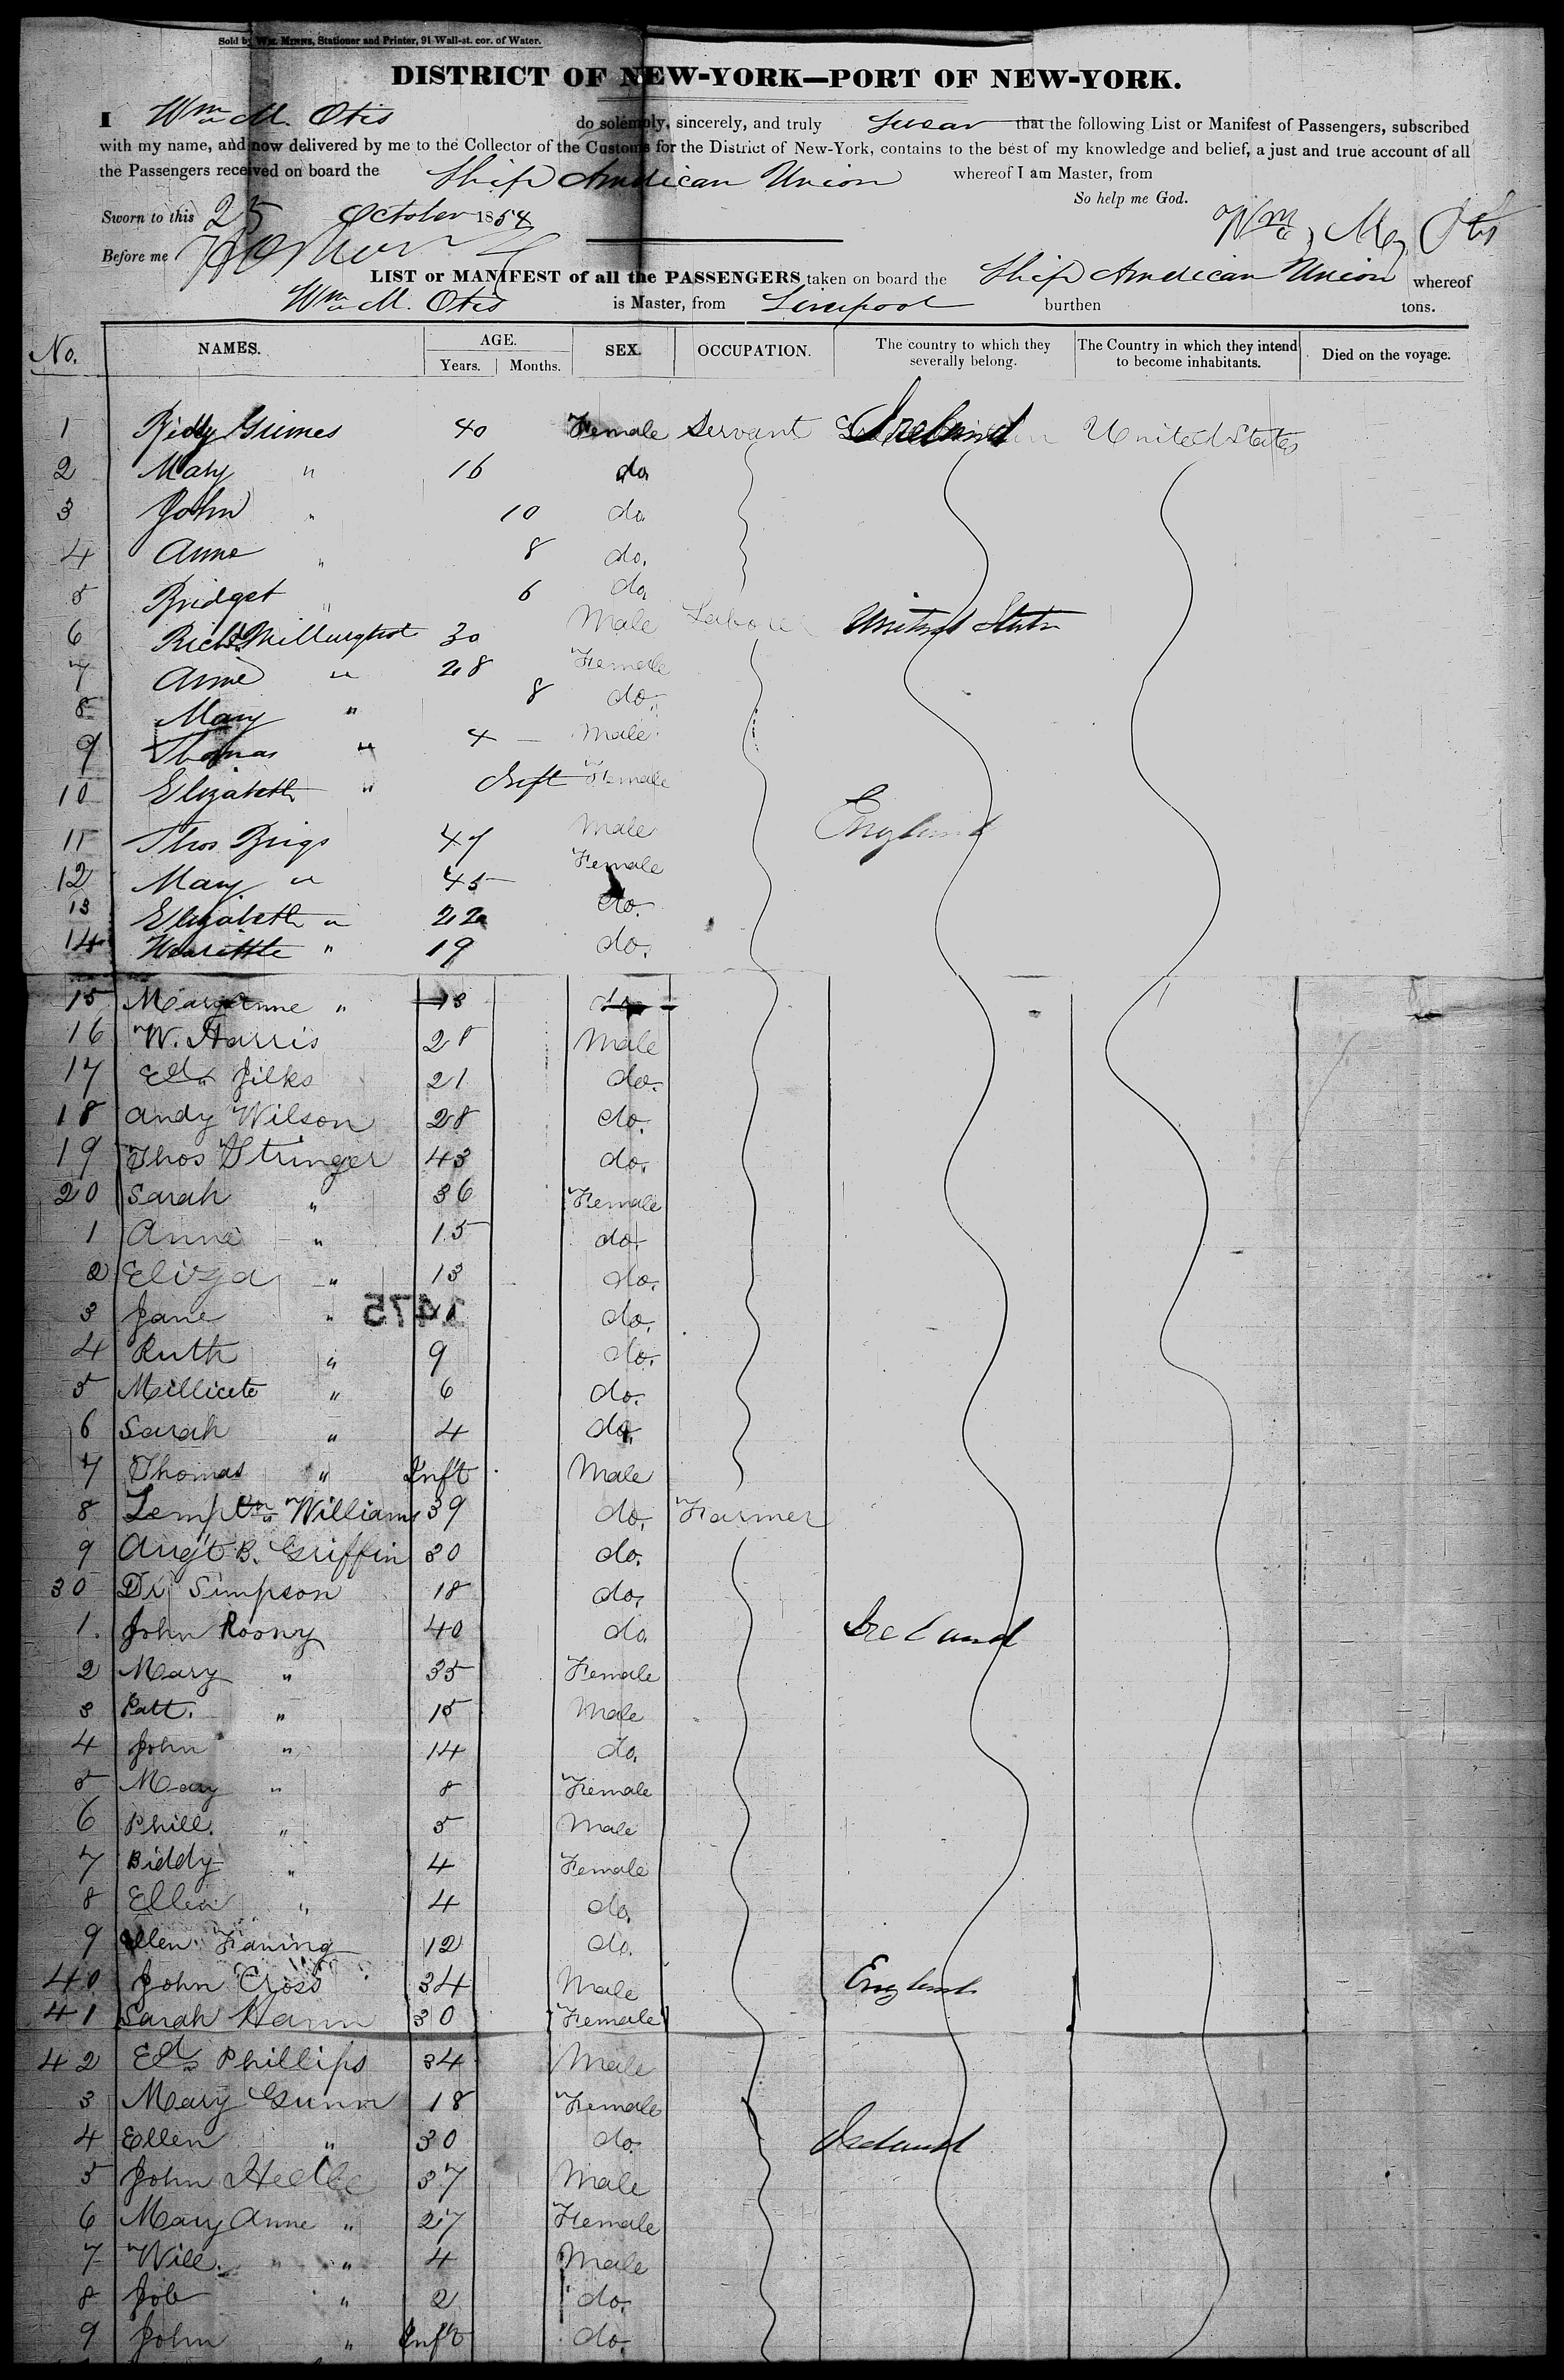 Sold by Wm. Minns, Stationer and Printer, 91 Wall-st. cor. of Water.
DISTRICT OF NEW-YORK—PORT OF NEW-YORK.
I Wm M. Otis do solemnly, sincerely, and truly swear that the following List or Manifest of Passengers, subscribed
with my name, and now delivered by me to the Collector of the Customs for the District of New-York, contains to the best of my knowledge and belief, a just and true account of all
the Passengers received on board the Ship American Union whereof I am Master, from
So help me God.
Sworn to this 25 October 1854
Wm. M. Otis
Before me
LIST or MANIFEST of all the PASSENGERS taken on board the Ship American Union whereof
Wm M. Otis is Master, from Liverpool burthen tons.
No. NAMES. AGE. Years. Months. SEX. OCCUPATION. The country to which they severally belong. The Country in which they intend to become inhabitants. Died on the voyage.
1 Grimes 40 Female Servant Ireland United States
2 Mary " 16 do.
3 John " 10 do.
4 Anne " 8 do.
5 Bridget " 6 do.
6 Richd 30 Male Laborer United States
7 Anne " 28 Female
8 Mary " 8 do.
9 Thomas " 4 Male
10 Elizabeth " Inft Female
11 Thos Brigs 47 Male England
12 Mary " 45 Female
13 Elizabeth " 22 do.
14 " 19 do.
15 Mary Anne " 13 do.
16 W. Harris 28 Male
17 Ed. Jilks 21 do.
18 Andy Wilson 28 do.
19 Thos Stringer 43 do.
20 Sarah " 36 Female
1 Anne " 15 do.
2 Eliza " 13 do.
3 Jane " 11 do.
1475
4 Ruth " 9 do.
5 " 6 do.
6 Sarah " 4 do.
7 Thomas " Inft Male
8 Williams 39 do. Farmer
9 Augt B. Griffin 30 do.
30 Simpson 18 do.
1. John Roony 40 do. Ireland
2 Mary " 35 Female
3 Patt. " 15 Male
4 John " 14 do.
5 Mary " 8 Female
6 Phill. " 5 Male
7 Biddy " 4 Female
8 Ellen " 4 do.
9 Ellen Faning 12 do.
40 John Cross 34 Male England
41 Sarah Hann 30 Female
42 Ed. Phillips 34 Male
3 Mary Gunn 18 Female
4 Ellen " 30 do. Ireland
5 John 37 Male
6 Mary Anne " 27 Female
7 Will. " " 4 Male
8 Job " 2 do.
9 John " Inft do.